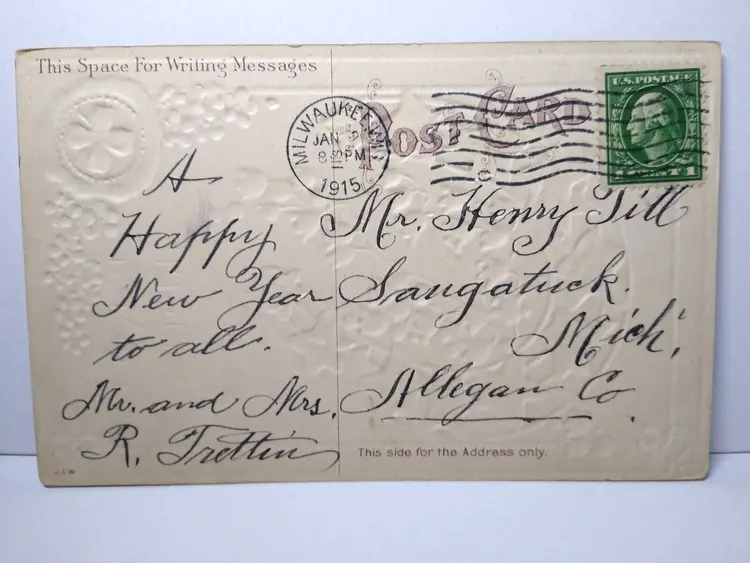 This Space For Writing Messages
POST CARD
U.S. POSTAGE
1 CENT 1
MILWAUKEE, WIS.
JAN
8 30 PM
1915
A
Happy
New Year
to all.
Mr. and Mrs.
R. Trettin
Mr. Henry Till
Saugatuck.
Mich.
Allegan Co.
This side for the Address only.